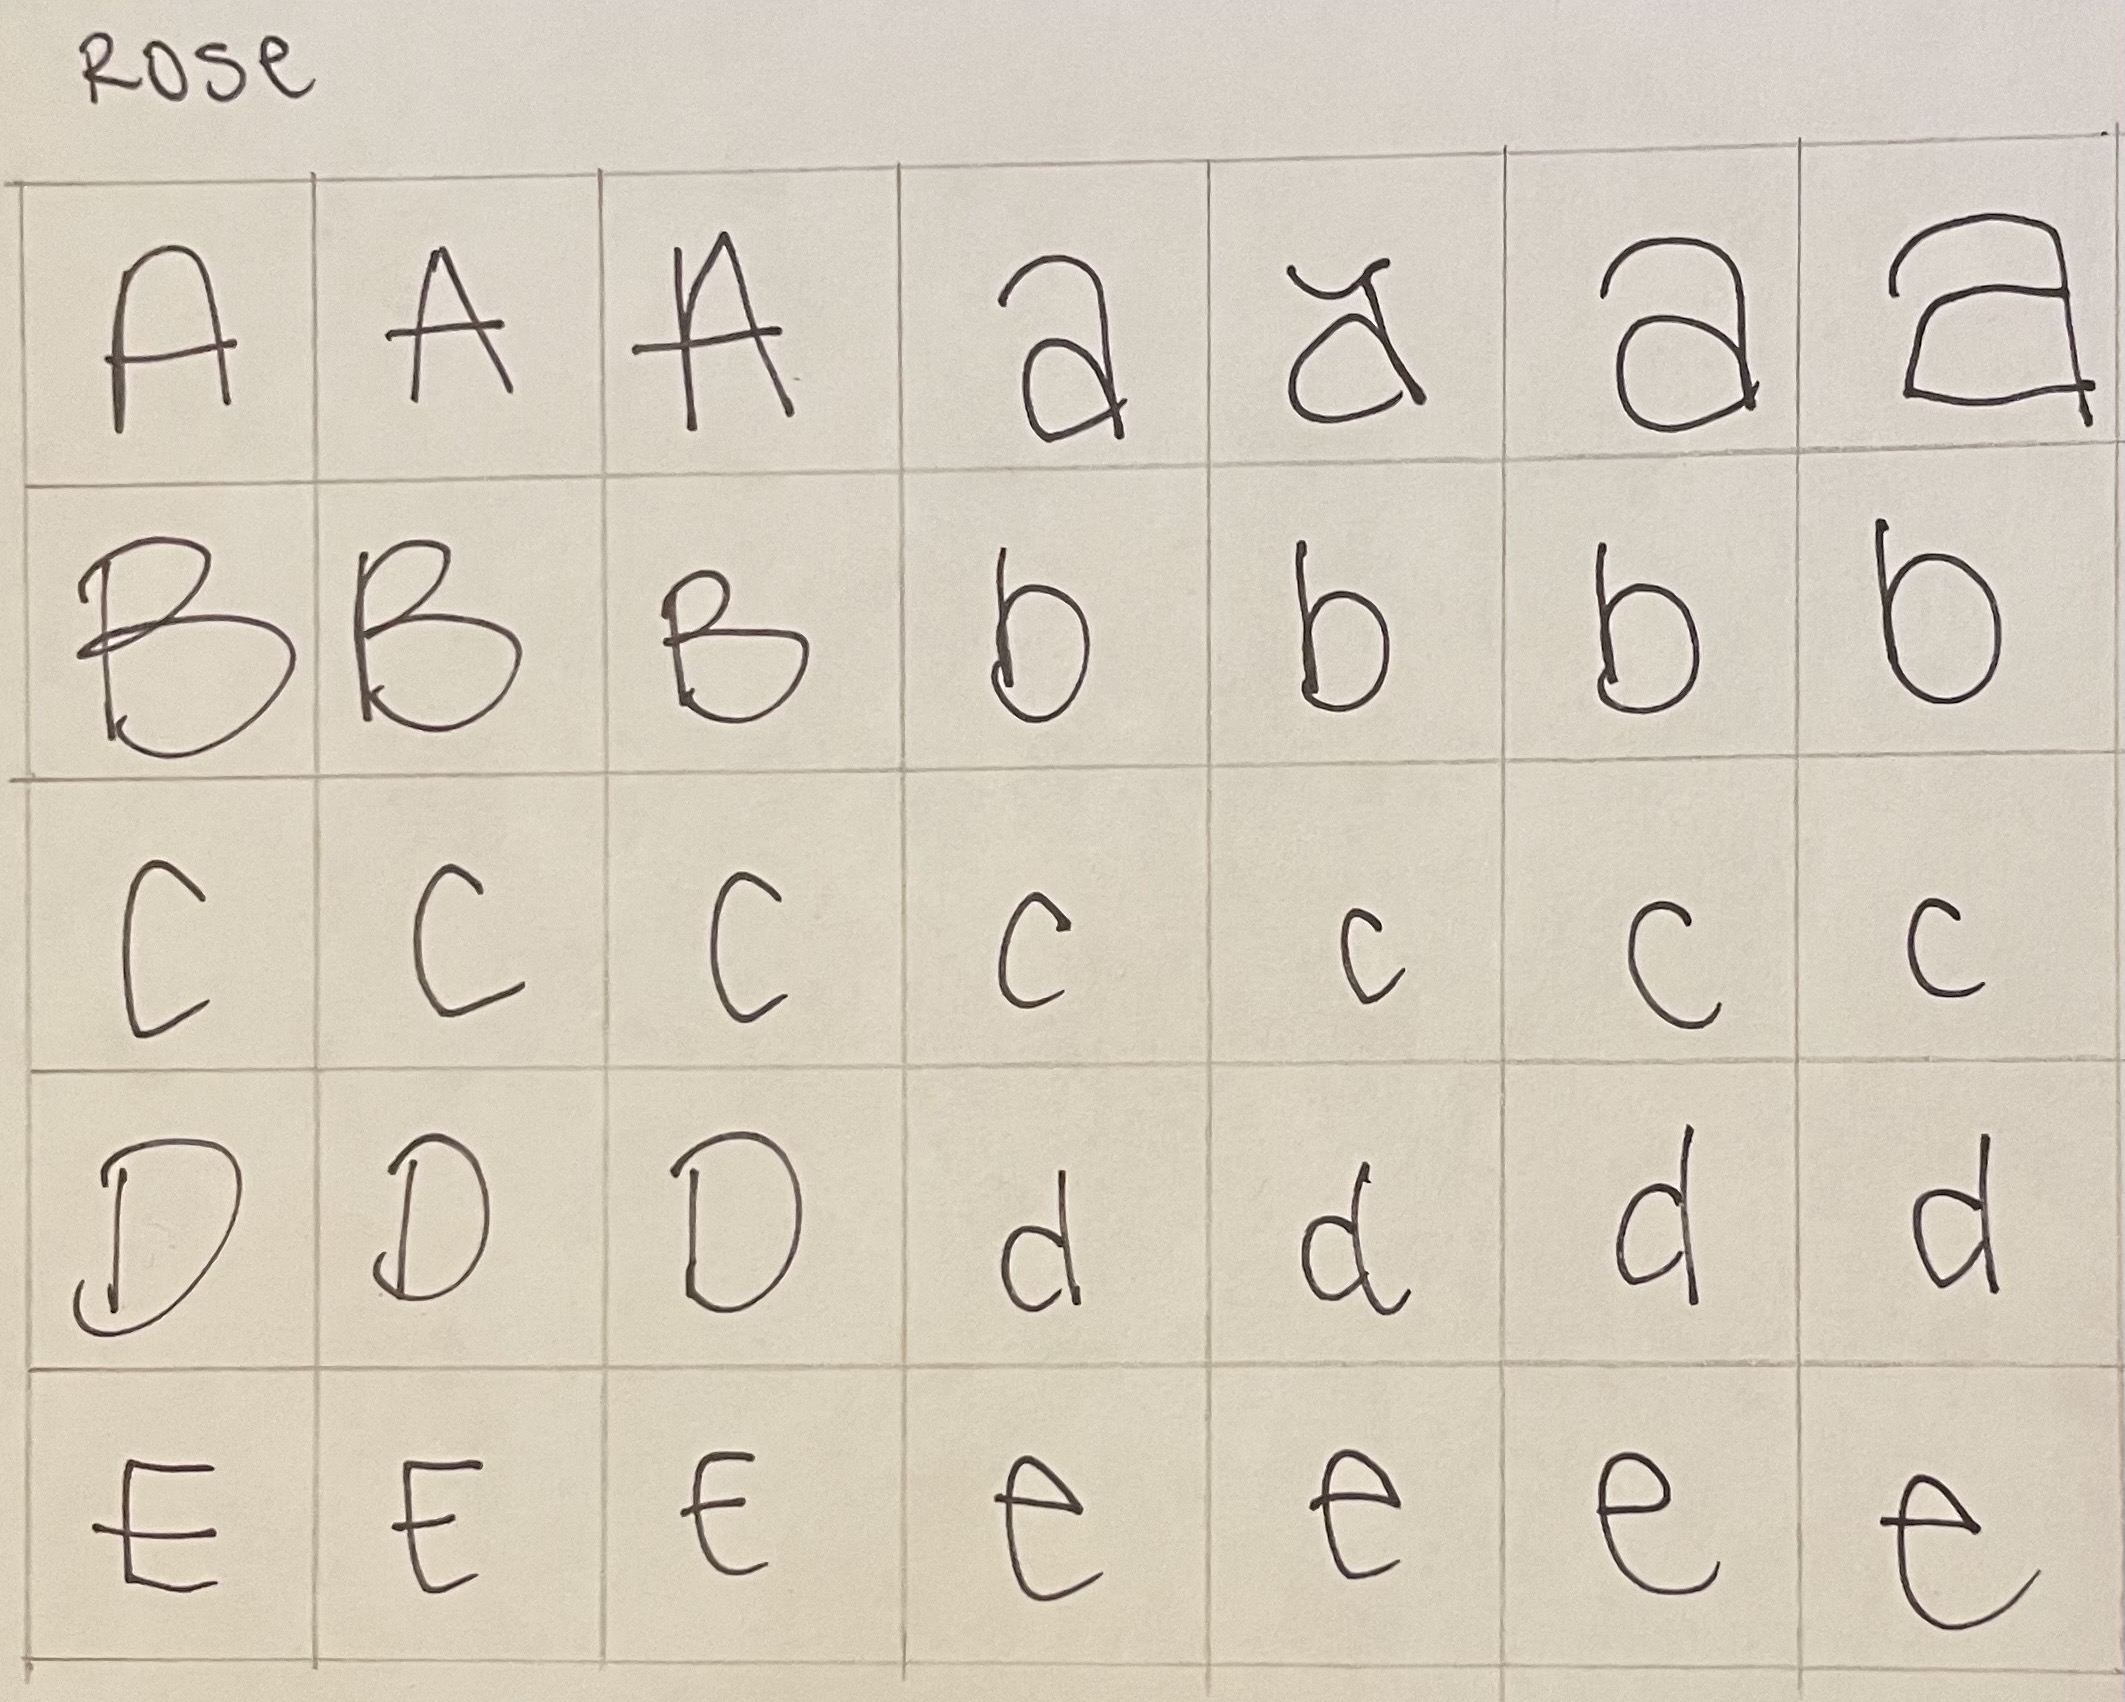 Rose
A A A a a a a
B B B b b b b
C C C c c c c
D D D d d d d
E E E e e e e